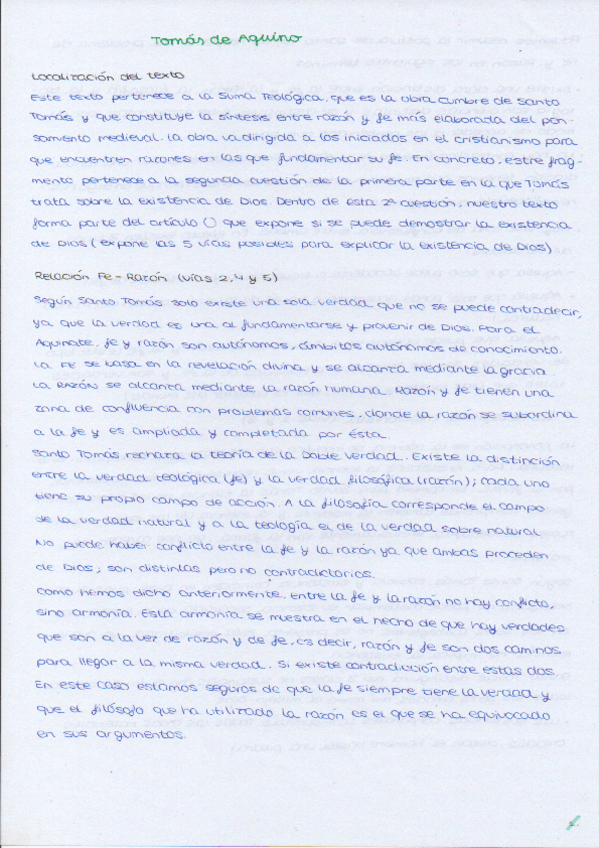 Tomás de Aquino
Localización del texto
Este texto pertenece a la Suma Teológica, que es la obra cumbre de Santo
Tomás y que constituye la síntesis entre razón y fe más elaborada del pen-
samiento medieval. La obra va dirigida a los iniciados en el cristianismo para
que encuentren razones en las que fundamentar su fe. En concreto, estre frag-
mento pertenece a la segunda cuestión de la primera parte en la que Tomás
trata sobre la existencia de Dios. Dentro de esta 2ª cuestión, nuestro texto
forma parte del artículo () que expone si se puede demostrar la existencia
de Dios (expone las 5 vías posibles para explicar la existencia de Dios)
Relación Fe - Razón (vías 2, 4 y 5)
Según Santo Tomás solo existe una sola verdad que no se puede contradecir,
ya que la verdad es una al fundamentarse y provenir de Dios. Para el
Aquinate, fe y razón son autónomos, ámbitos autónomos de conocimiento.
La FE se basa en la revelación divina y se alcanza mediante la gracia
La RAZÓN se alcanza mediante la razón humana. Razón y fe tienen una
zona de confluencia con problemas comunes, donde la razón se subordina
a la fe y es ampliada y completada por ésta.
Santo Tomás rechaza la teoría de la Doble verdad. Existe la distinción
entre la verdad teológica (fe) y la verdad filosófica (razón); cada uno
tiene su propio campo de acción. A la filosofía corresponde el campo
de la verdad natural y a la teología el de la verdad sobre natural
No puede haber conflicto entre la fe y la razón ya que ambas proceden
de Dios; son distintas pero no contradictorias.
Como hemos dicho anteriormente, entre la fe y la razón no hay conflicto,
sino armonía. Esta armonía se muestra en el hecho de que hay verdades
que son a la vez de razón y de fe, es decir, razón y fe son dos caminos
para llegar a la misma verdad. Si existe contradicción entre estas dos.
En este caso estamos seguros de que la fe siempre tiene la verdad y
que el filósofo que ha utilizado la razón es el que se ha equivocado
en sus argumentos.